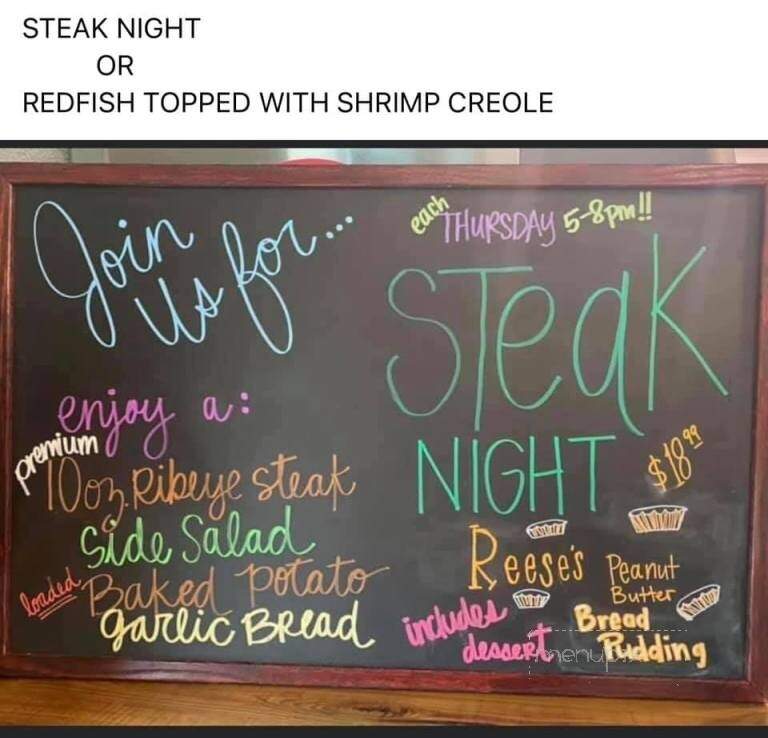 STEAK NIGHT
OR
REDFISH TOPPED WITH SHRIMP CREOLE
Join
us for...
each THURSDAY 5-8pm!!
STeaK
NIGHT $18.99
enjoy a:
premium
10oz. Ribeye steak
Side Salad
loaded Baked potato
garlic BRead
Reese's Peanut
Butter
Bread
Pudding
includes
dessert